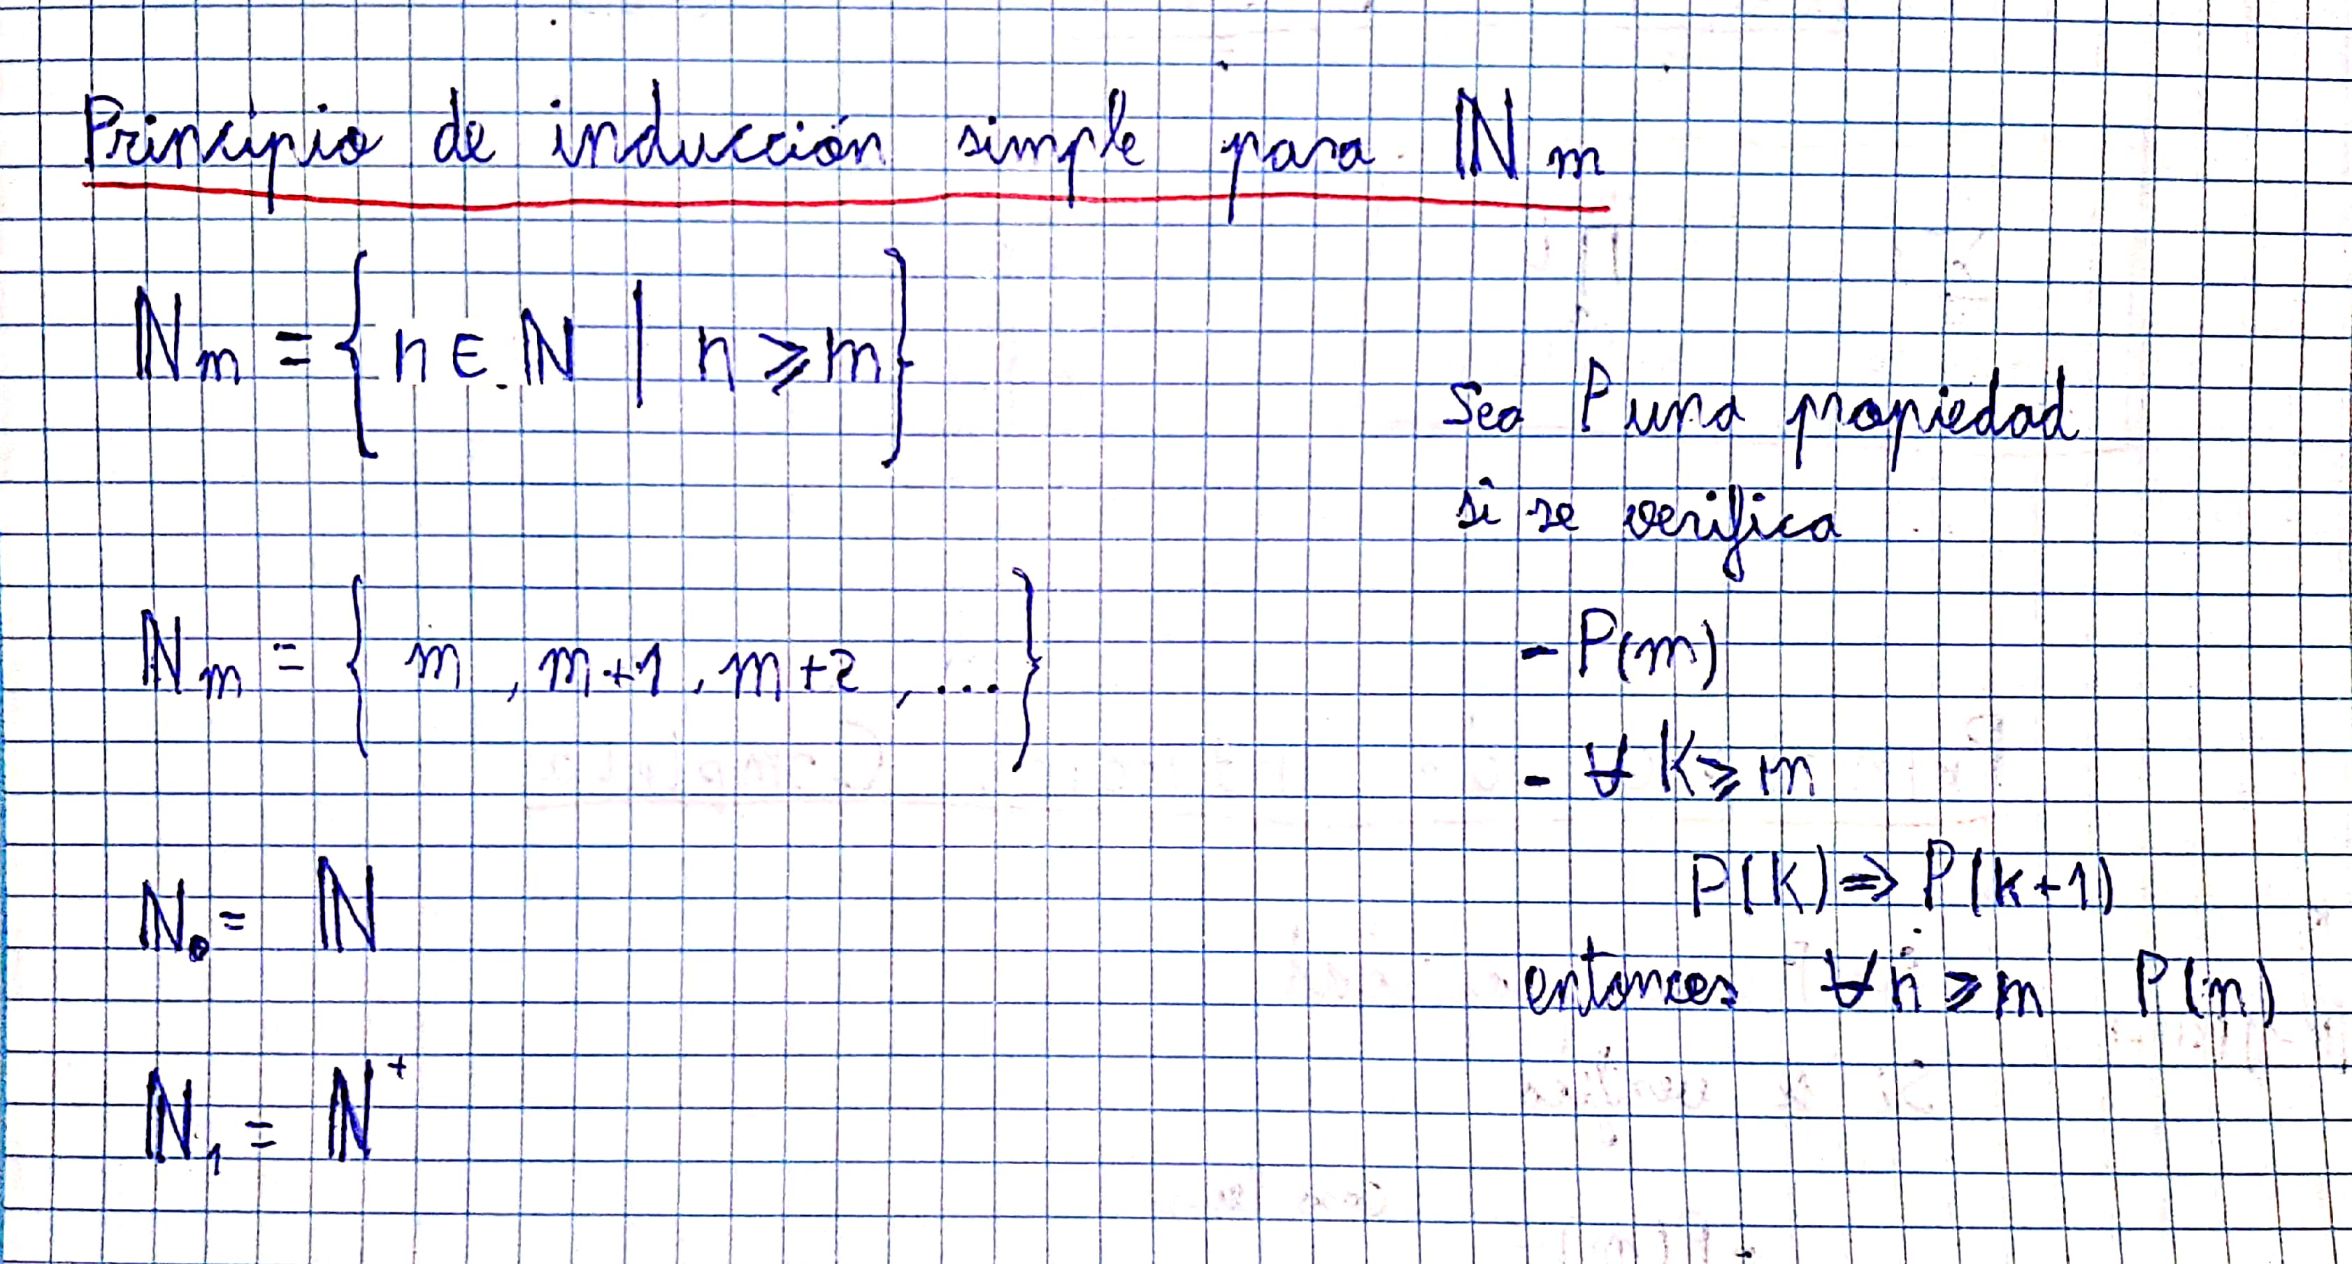 Principio de inducción simple para ℕm
ℕm = { n ∈ ℕ | n ⩾ m }
ℕm = { m, m+1, m+2, ... }
ℕ₀ = ℕ
ℕ₁ = ℕ⁺
Sea P una propiedad
si se verifica
- P(m)
- ∀ k ⩾ m
P(k) ⇒ P(k+1)
entonces ∀ n ⩾ m P(n)